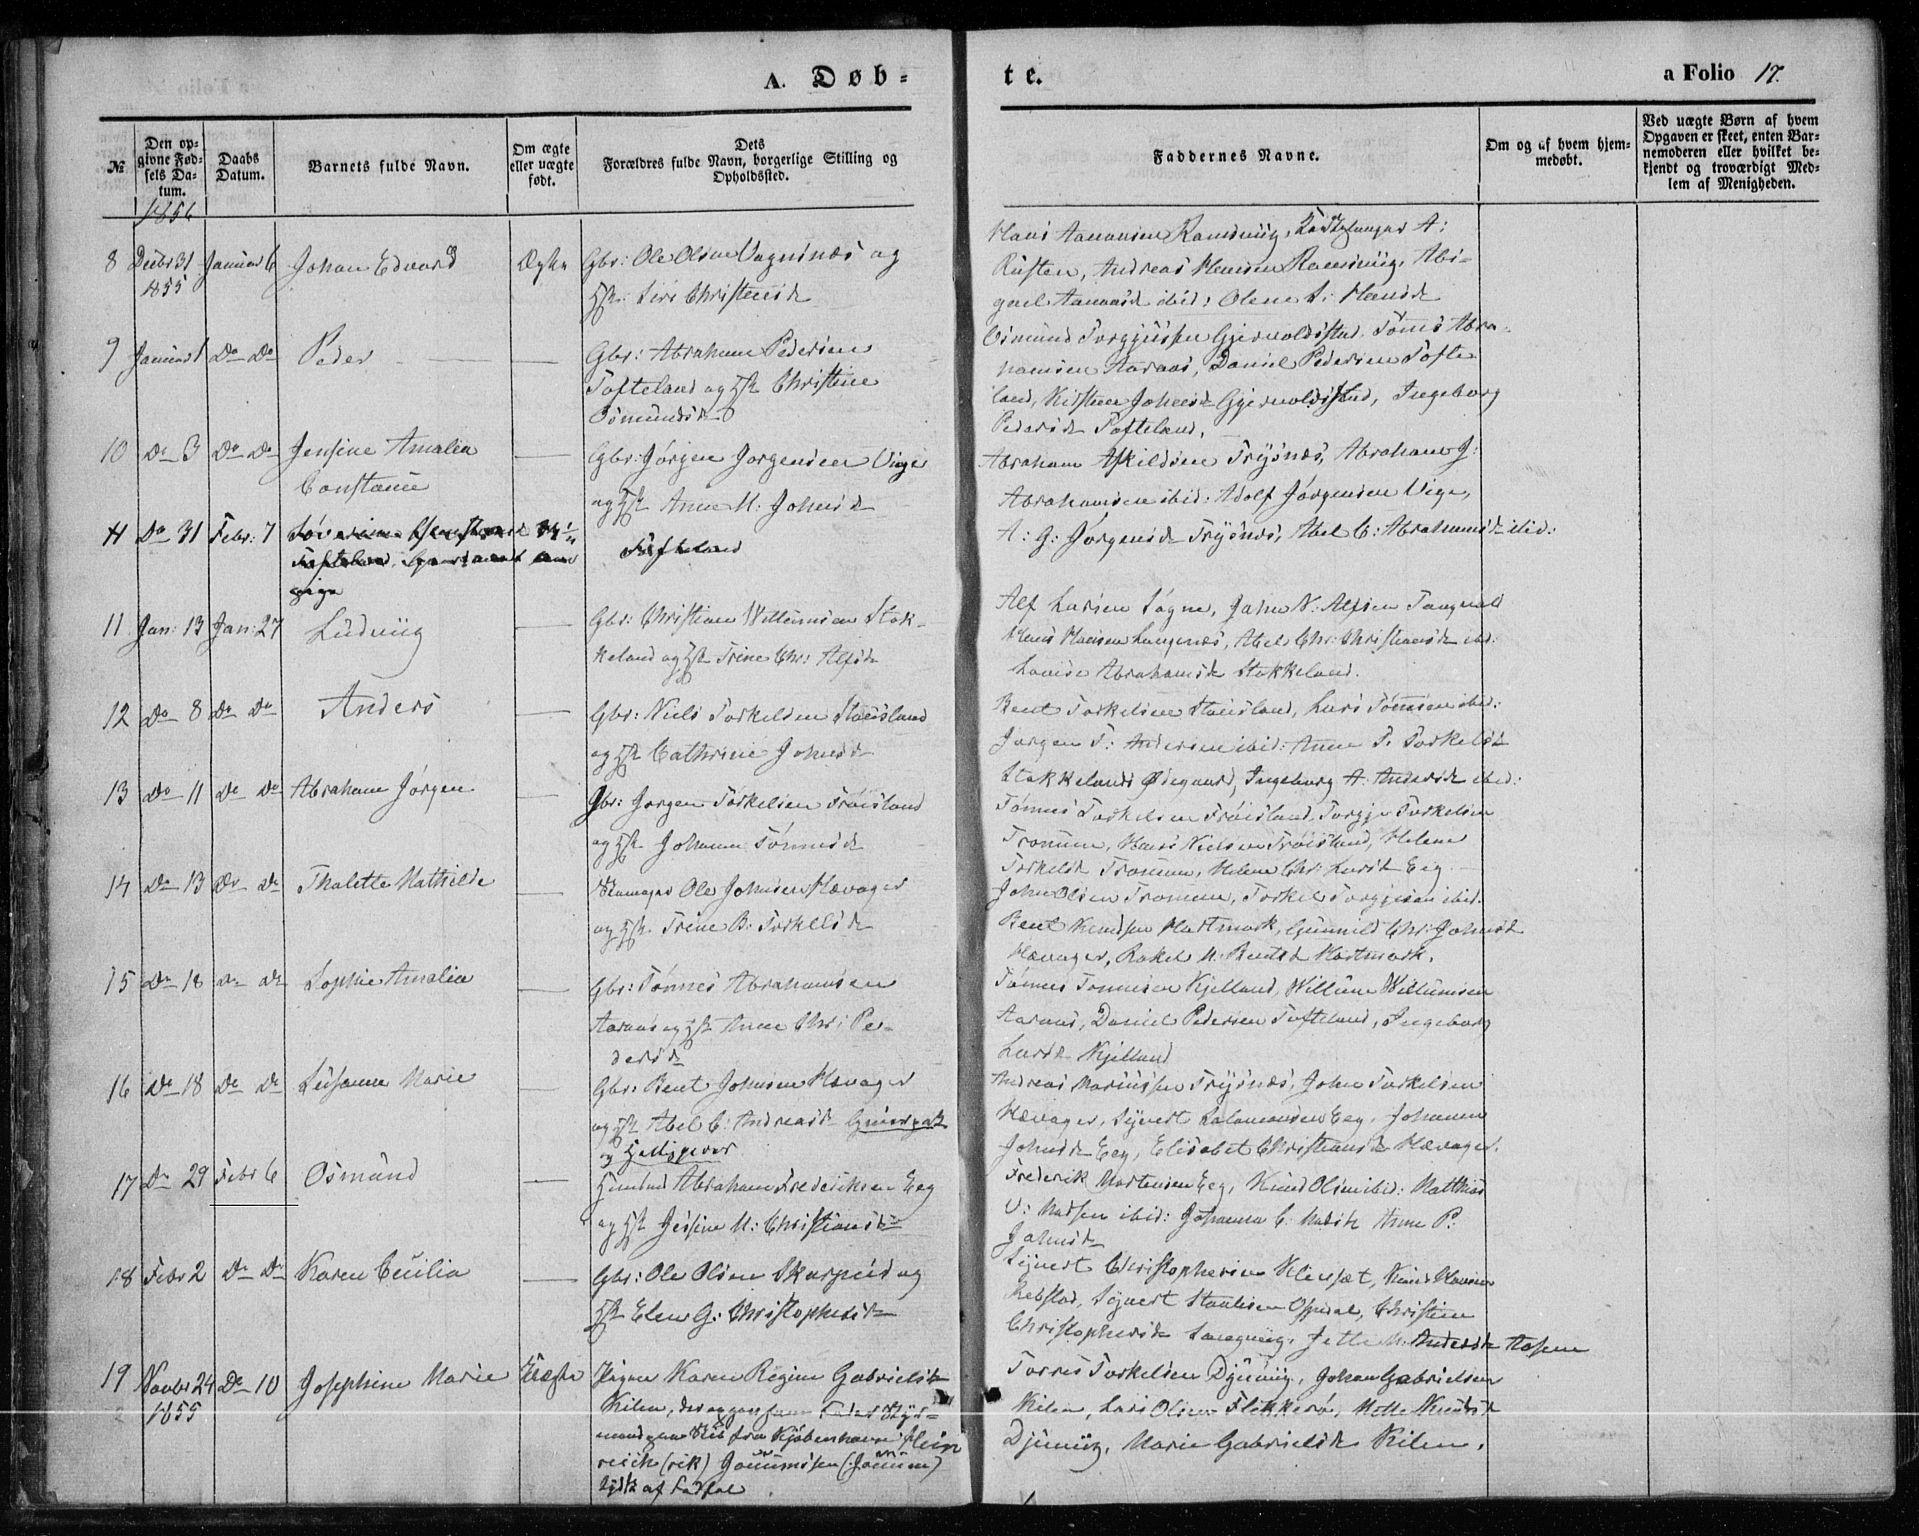 A. Døb- te. a Folio 17.
№
Den opgivne Fødsels Datum.
Daabs Datum.
Barnets fulde Navn.
Om ægte eller uægte født.
Dets Forældres fulde Navn, borgerlige Stilling og Opholdssted.
Faddernes Navne.
Om og af hvem hjemmedøbt.
Ved uægte Børn af hvem Opgaven er skeet, enten Barnemoderen eller hvilket bekjendt og troværdigt Medlem af Menigheden.
1856
8 Decbr 31 1855 Januar 6 Johan Edvard Ægte Gbr: Ole Olsen Vagsnæs og
Hst: Siri Christensd
Hans Aanonsen Ramsvig,
Rusten, Andreas Hansen Ramsvig, Abi-
gael Aanonsd ibid: Olene S: Hansd
9 Januar 1 Do Do Peder Gbr: Abraham Pedersen
Tofteland og Hst Christine
Osmundsd
Osmund Torgjussen Gjervoldstad, Tønes Abra-
hamsen Aaraas, Daniel Pedersen Tofte
land, Kirsten Johnsd Gjervoldstad, Ingeborg
Pedersd Tofteland,
10 Do 3 Do Do Jensine Amalia
Constance
Gbr: Jørgen Jørgensen Vige
og Hst Anne M. Johnsd
Abraham Askildsen Trysnæs, Abraham J:
Abrahamsen ibid: Adolf Jørgensen Vige,
A: G: Jørgensd Trysnæs, Abel C: Abrahamsd ibid:
11 Do 31 Febr: 7
Tofteland
11 Jan: 13 Jan: 27 Ludvig Gbr: Christian Willumsen Stok-
keland og Hst Trine Chr: Alfsd
Alf Larsen Søgne, John N: Alfsen Tangvall
Hans Hansen Langenæs, Abel Chr: Christiansd ibid:
Lovise Abrahamsd Stokkeland.
12 Do 8 Do Do Anders Gbr: Niels Torkelsen Stausland
og Hst Cathrine Johnsd
Bent Torkelsen Stausland, Lars Tønnesen ibid:
Jørgen T: Andersen ibid: Anne T. Torkelsd
Stokkelands Ødegaard, Ingeborg A: Andersd ibid:
13 Do 11 Do Do Abraham Jørgen Gbr: Jørgen Torkelsen Frøisland
og Hst Johanne Tønnesd
Tønnes Torkelsen Frøisland, Torgje Torkelsen
Tromme, Hans Nielsen Frøisland, Helene
Torkelsd Tromme, Helene Chr: Larsd Eeg
14 Do 13 Do Do Thalette Mathilde Ole Johnsen Hævager
og Hst. Trine B: Torkelsd
John Olsen Tromme, Torkel Torgjesen ibid.
Bent Knudsen Hortmark, Gunnild Chr: Johnsd
Hævager, Rakel M: Bentsd Hortmark.
15 Do 18 Do Do Sophie Amalia Gbr: Tønnes Abrahamsen
Aaraas og Hst Anne Chr: Pe-
dersd
Tønnes Tønnesen Kjelland, Willum Willumsen
Aaraas, Daniel Pedersen Tofteland, Ingeborg
Larsd Kjelland
16 Do 18 Do Do Susanne Marie Gbr: Bent Johnsen Hævager
og Hst Abel C: Andreasd
Andreas Mariussen Trysnæs, John Torkelsen
Hævager, Syvert Salomonsen Eeg, Johanne
Johnsd Eeg, Elisabet Christiansd Hævager.
17 Do 29 Febr 6 Osmund Abraham Frederiksen Eeg
og Hst Jensine M: Christiansd
Frederik Mortensen Eeg, Knud Olsen ibid: Matthias
O: Madsen ibid: Johanna C. Madsd Anne P:
Johnsd
18 Febr 2 Do Do Karen Cecilia Gbr: Ole Olsen Skarpeid og
Hst Elen G: Christophersd
Syvert Christophersen Klepsæt, Knud Hansen
Repstad, Syvert Ospedal, Christine
Christophersd Langvig, Jette M. Andersd Aasene
19 Novbr 24 1855 Do 10 Josephine Marie Uægte Pigen Karen Regine Gabrielsd
Kilen, derogsom Fader Styr-
mand paa Skib fra Kjøbenhavn Hein
reich (rik)
Torres Torkelsen Djupvig, Johan Gabrielsen
Kilen, Lars Olsen Flekkerø, Mette Knudsd
Djupvig, Marie Gabrielsd Kilen.